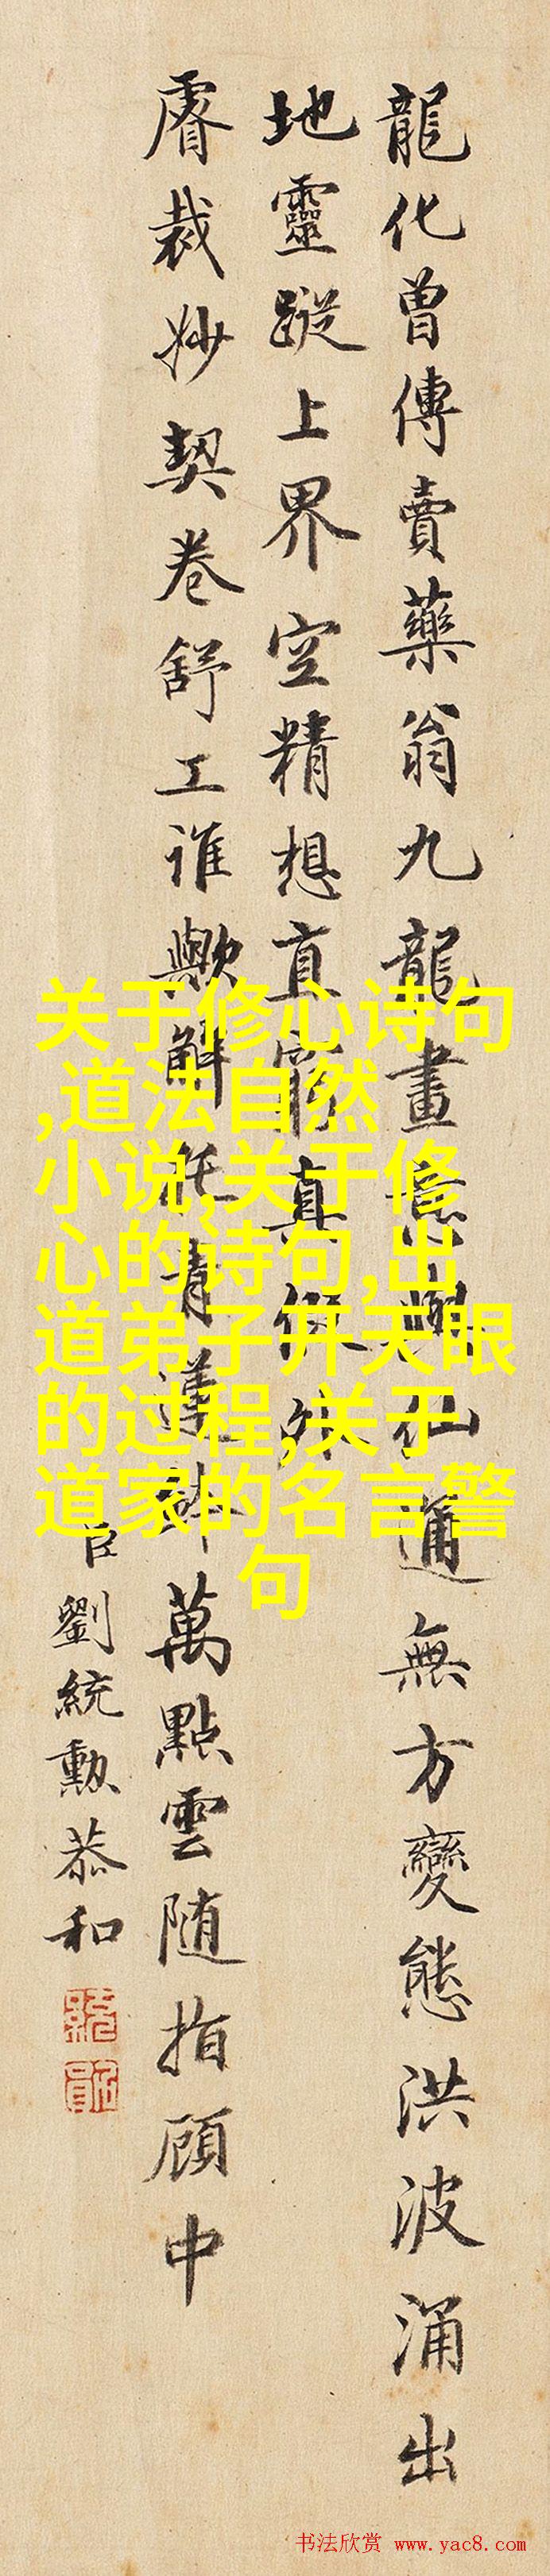 龍化曾傳賣藥翁九龍畫意與仙通無方變態洪波涌出
地靈蹤上界空精想直窮真
膚裁妙契卷舒工誰歟解從青蓮萬點雲随指顧中
臣劉統勲恭和
关于修心诗句
,道法自然
小说,关于修
心的诗句,出
道弟子开天眼
的过程,关于
道家的名言警
句
书法欣赏 www.yac8.com